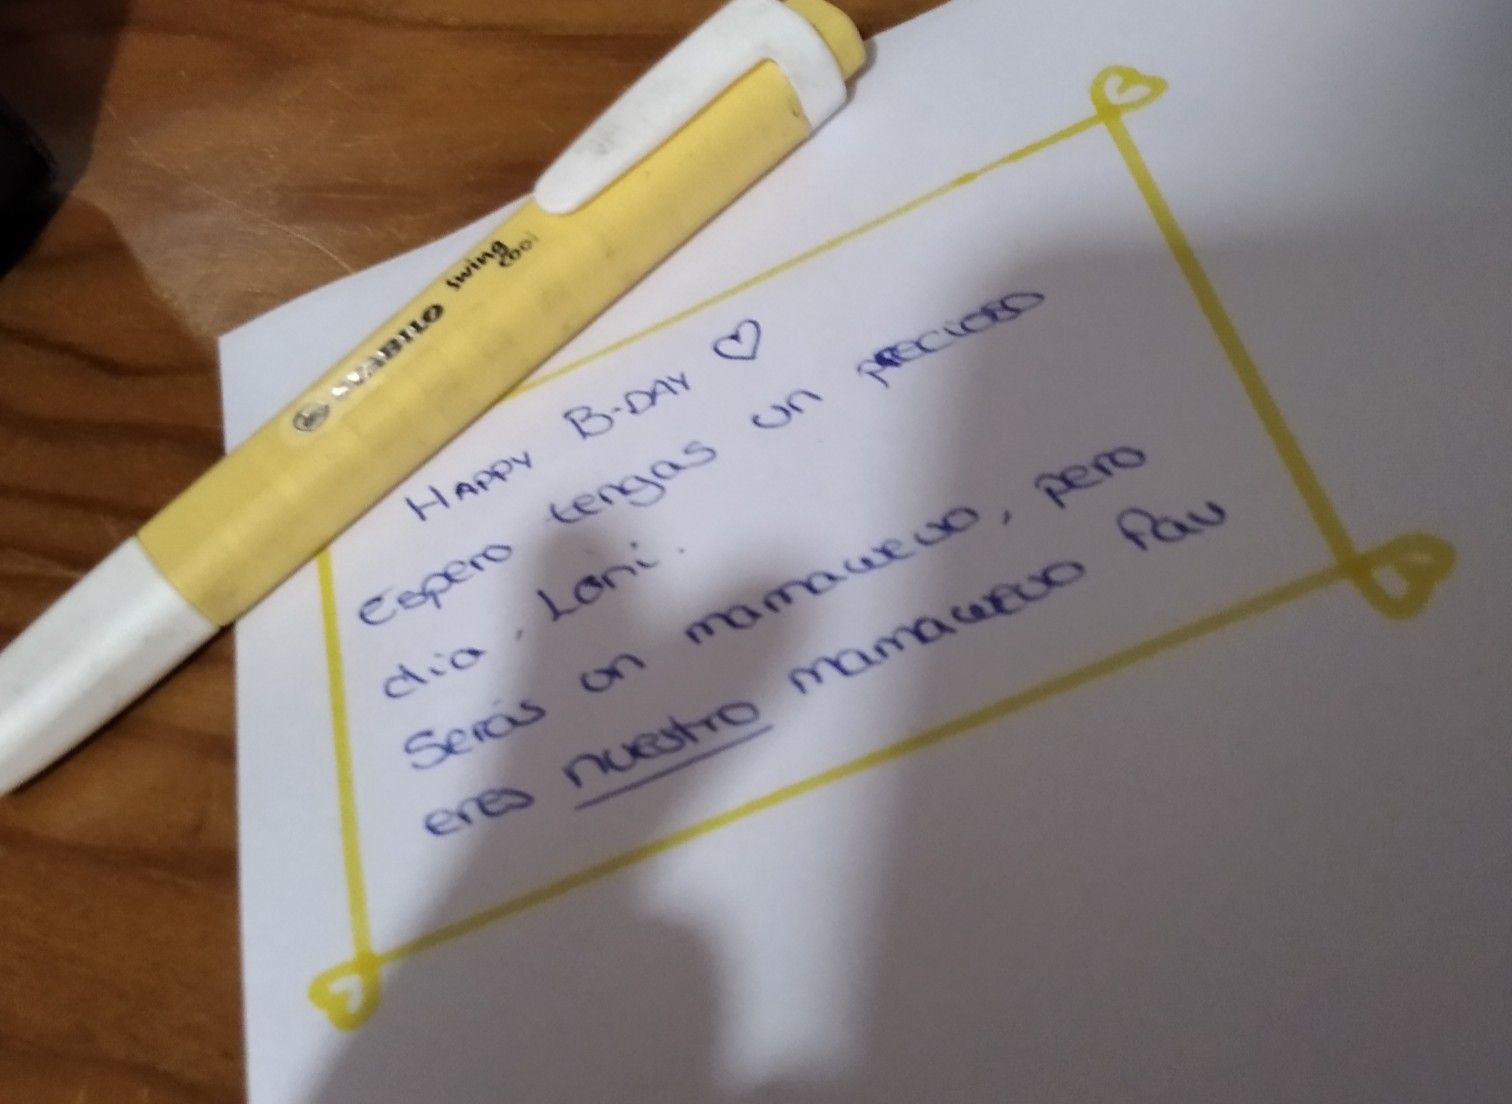 STABILO swing cool
HAPPY B-DAY ♡
Espero tengas un precioso
día, Loni.
Serás un mamawevo, pero
eres nuestro mamawevo fav